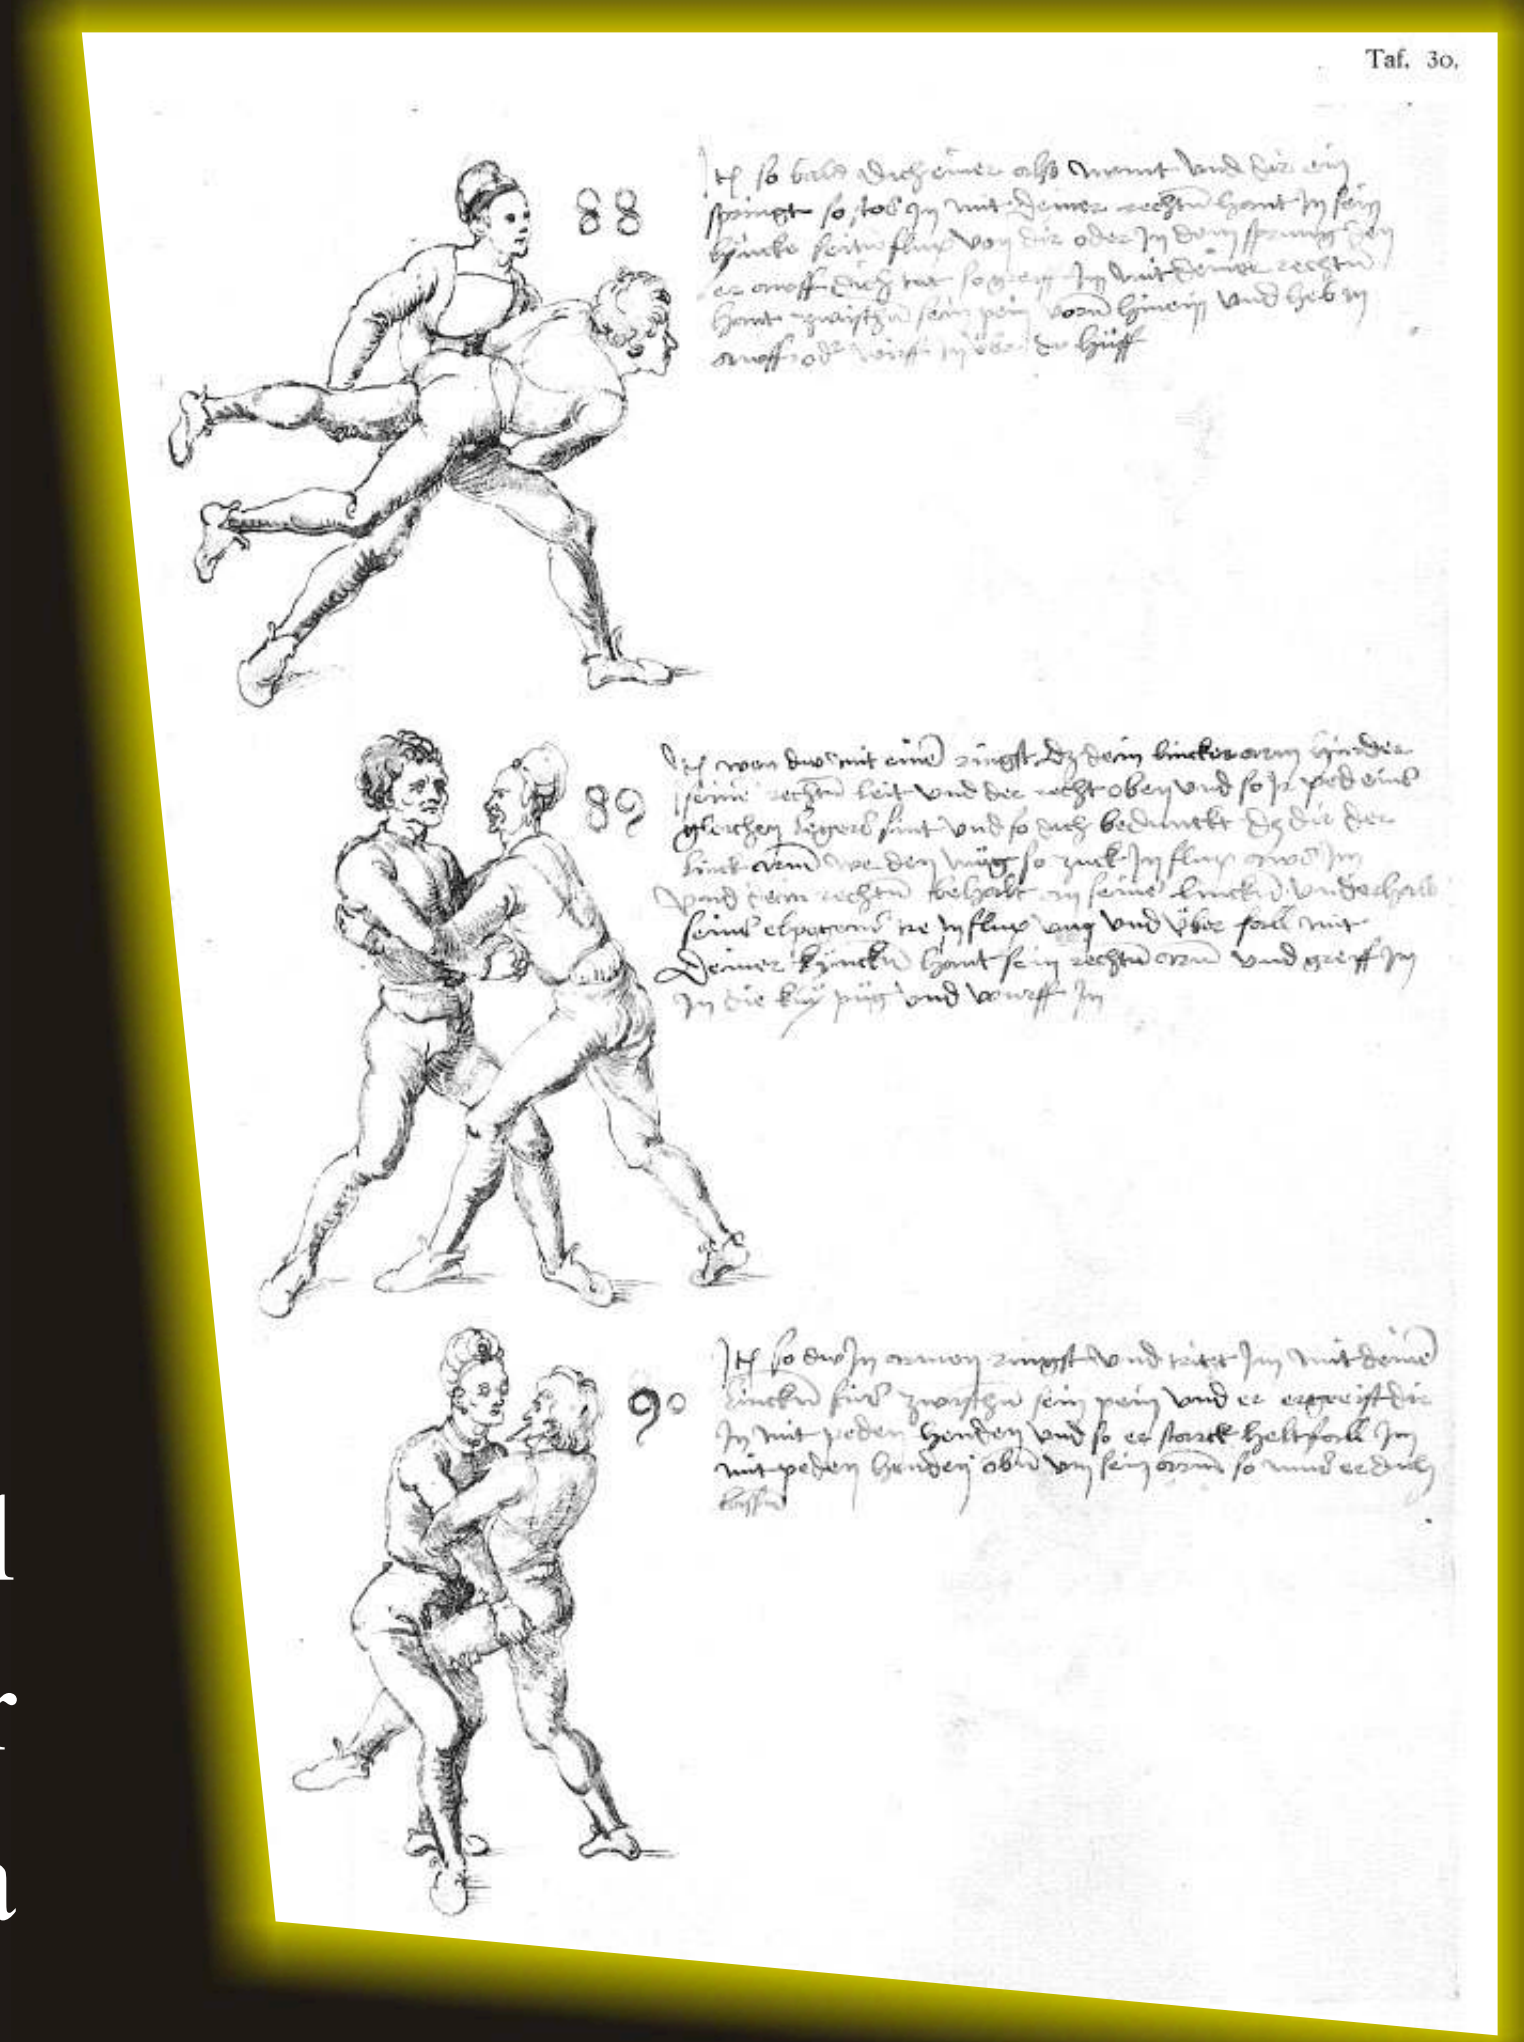 Taf. 30.
88
Itē so bald dich einer also nimt vnd dir ein
springt so stos in mit deiner rechtn̄ hant in sein
lyncke seitn̄ flux von dir oder in dem sprung den
er auff dich tut so greiff im mit deiner rechtn̄
hant zwischn̄ sein pein vorn̄ hinein vnd heb in
auff odr̄ wirff in über dy hüff
89
Itē wen dw mit einē ringst dz dein lincker arm hinder
seinē rechtn̄ leit vnd der recht oben vnd so ir ped eins
gleichen legers sint vnd so dich bedunckt dz dir der
linck arm̄ werden müg so zuck in flux aws im
vnd dein rechtn̄ behalt an seinē linckn̄ vnderhalb
seins elpogens tre in flux um vnd über fall mit
deiner lynckn̄ hant sein rechtn̄ arm̄ vnd greiff im
in die kny püg vnd wirff in
90
Itē so dw in armen ringst vnd tritst im mit deinē
linckn̄ fus zwischn̄ sein pein vnd er ergreift dir
in mit peden henden vnd so er starck helt fall im
mit peden henden obn̄ vm sein arm̄ so mus er dich
lassen
l
r
a